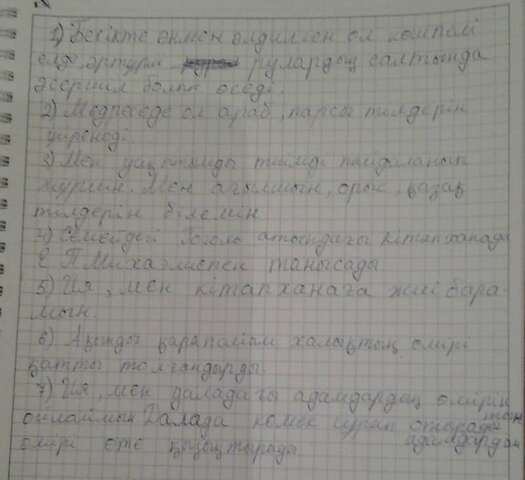 1) Бесікте әнмен әлдилген ол көшпелі
ел, әртүрлі рулардың салтында
әсершіл болып өседі.
2) Медреседе ол араб, парсы тілдерін
үйренеді.
3) Мен уақытымды тиімді пайдаланып
жүрмін. Мен ағылшын, орыс, қазақ
тілдерін білемін
4) Семейдегі Гоголь атындағы кітапханада
Е П Михаэлиспен танысады
5) Ия, мен кітапханаға жиі бара-
мын.
6) Ақынды қарапайым халықтың өмірі
қатты толғандырды.
7) Ия, мен даладағы адамдардың өмірін
ойлаймын Далада көмек сұрап отыратын
өмірі өте қызықтырады адамдардың